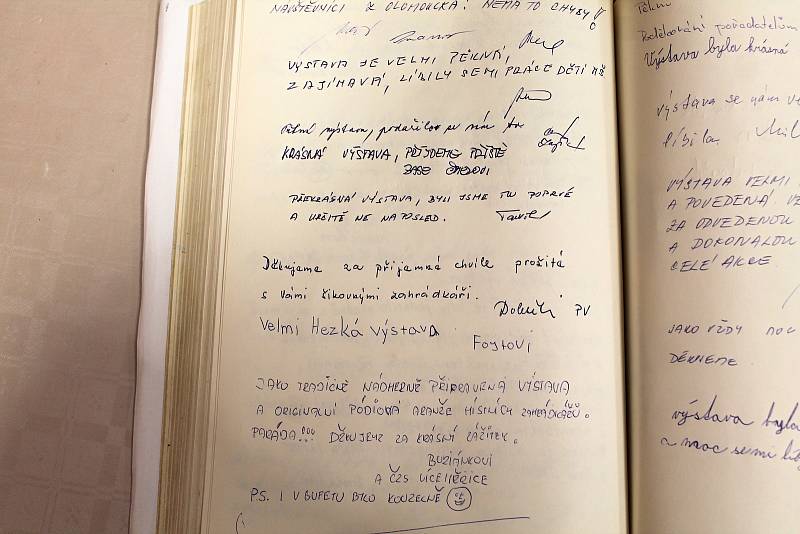 NÁVŠTĚVNÍCI Z OLOMOUCKA! NEMÁ TO CHYBY!
VÝSTAVA JE VELMI PĚKNÁ,
ZAJÍMAVÁ, LÍBILY SE MI PRÁCE DĚTÍ MŠ
Pěkná výstava, podařilo se vám to
KRÁSNÁ VÝSTAVA, PŘIJDEME PŘÍŠTĚ
ZASE
PŘEKRÁSNÁ VÝSTAVA, BYLI JSME TU POPRVÉ
A URČITĚ NE NAPOSLED.
Děkujeme za příjemné chvíle prožité
s Vámi šikovnými zahrádkáři.
PV
Velmi Hezká výstava
Foytovi
JAKO TRADIČNĚ NÁDHERNĚ PŘIPRAVENÁ VÝSTAVA
A ORIGINALNÍ PÓDIOVÁ ARANŽE MÍSTNÍCH ZAHRÁDKÁŘŮ.
PARÁDA!!! DĚKUJEME ZA KRÁSNÝ ZÁŽITEK.
BUZIÁNKOVI
A ČZS VÍCEMĚŘICE
P.S. I V BUFETU BYLO KOUZELNĚ
Poděkování pořadatelům
Výstava byla krásná
výstava se nám
líbila.
VÝSTAVA VELMI
A POVEDENÁ
ZA ODVEDENOU
A DOKONALOU
CELÉ AKCE
JAKO VŽDY MOC
DĚKUJEME
výstava byla
a moc se mi